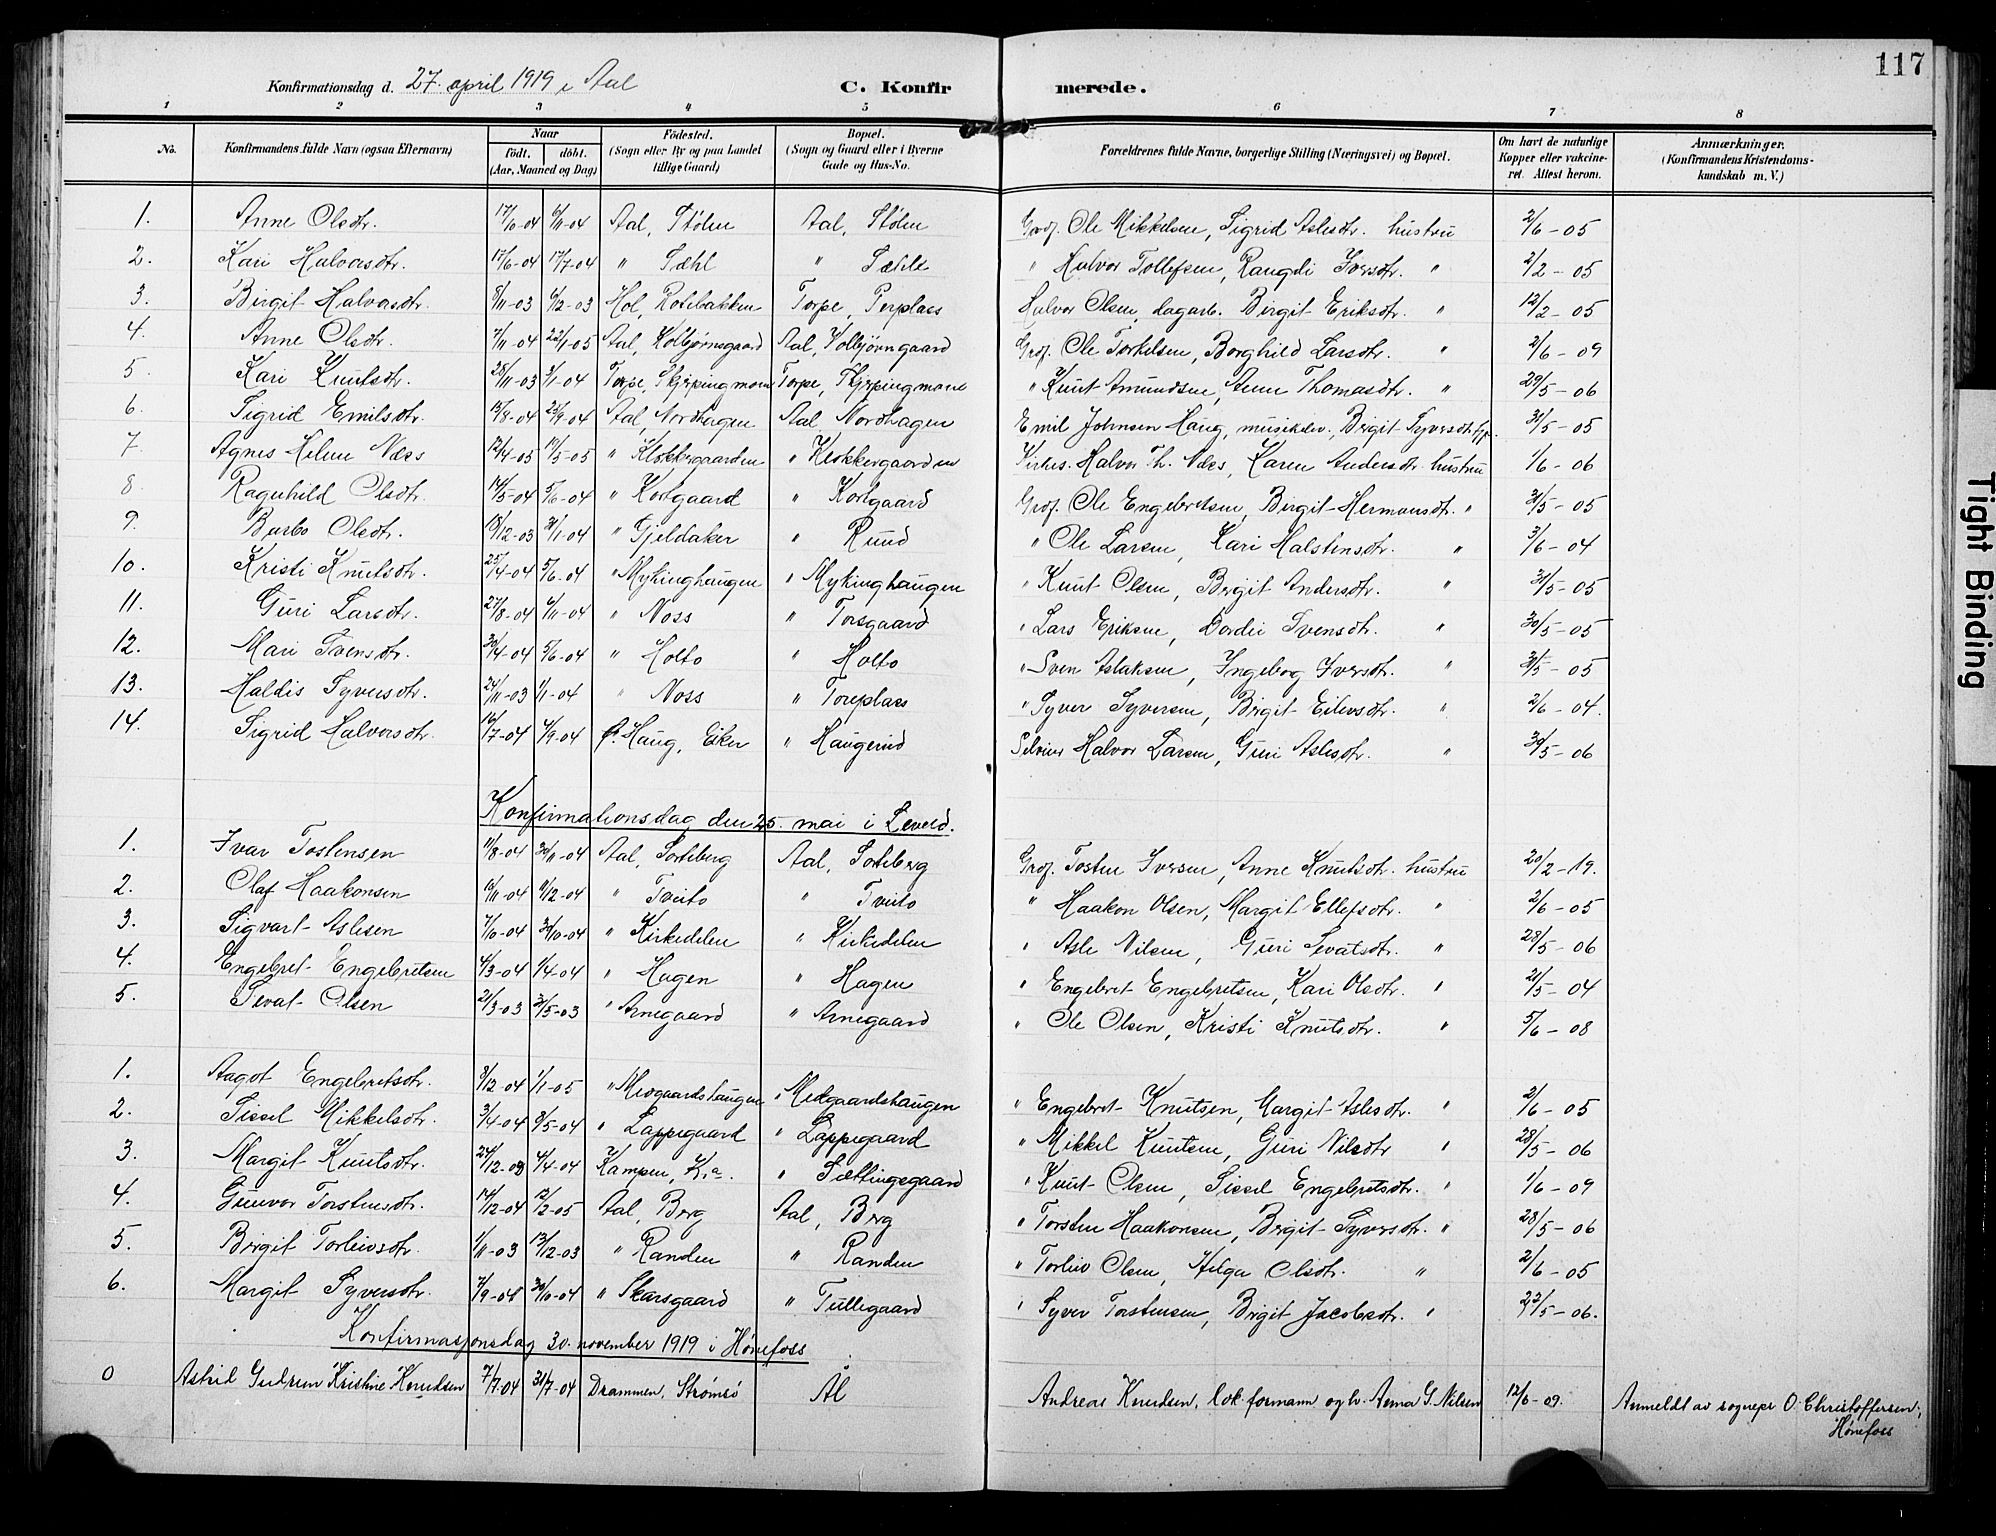 117
Konfirmationsdag d. 27. april 1919 i Aal
C. Konfirmerede.
1 2 3 4 5 6 7 8
No. Konfirmandens fulde Navn (ogsaa Efternavn) Naar födt. döbt. (Aar, Maaned og Dag) Födested. (Sogn eller By og paa Landet tillige Gaard) Bopæl. (Sogn og Gaard eller i Byerne Gade og Hus-No. Forældrenes fulde Navne, borgerlige Stilling (Næringsvei) og Bopæl. Om havt de naturlige Kopper eller vakcineret. Attest herom. Anmærkninger. (Konfirmandens Kristendomskundskab m. V.)
1. Anne Olsdtr. 17/6-04 6/11-04 Aal, Stölen Aal, Stölen Grdf. Ole Mikkelsen, Sigrid Aslesdtr. hustru 2/6-05
2. Kari Halvorsdtr. 17/6-04 17/7-04 " Sæhl " Sæhle " Halvor Tollefsen, Rangdi Iversdtr. " 2/2-05
3. Birgit Halvorsdtr. 8/11-03 6/12-03 Hol, Rotebakken Torpe, Perplass Halvor Olsen, dagarb. Birgit Eriksdtr. " 12/2-05
4. Anne Olsdtr. 7/11-04 22/1-05 Aal, Kolbjörnsgaard Aal, Kolbjörngaard Grdf. Ole Torkelsen, Borghild Larsdtr. " 2/6-09
5. Kari Knutsdtr. 28/11-03 3/1-04 Torpe, Skjerpingmoen Torpe, Skjerpingmoen " Knut Amundsen, Anne Thomasdtr. " 29/5-06
6. Sigrid Emilsdtr. 15/8-04 25/9-04 Aal, Nordhagen Aal Nordhagen Emil Johnsen Haug, musikelev., Birgit Syversdtr. 31/5-05
7. Agnes Helene Næss 12/4-05 19/5-05 " Klokkergaarden " Klokkergaarden Kirkes. Halvor Th. Næss, Karen Andersdtr. hustru 1/6-06
8. Ragnhild Olsdtr. 14/5-04 5/6-04 " Kortgaard " Kortgaard Grdf. Ole Engebretsen, Birgit Hermansdtr. " 31/5-05
9. Barbo Olsdtr. 18/12-03 31/1-04 " Gjeldaker " Ruud " Ole Larsen, Kari Halstensdtr. " 3/6-04
10. Kristi Knutsdtr. 25/4-04 5/6-04 " Mykinghaugen " Mykinghaugen " Knut Olsen, Birgit Andersdtr. " 31/5-05
11. Guri Larsdtr. 27/8-04 6/11-04 " Noss " Torsgaard " Lars Eriksen, Dordei Svensdtr. " 30/5-05
12. Mari Svensdtr. 30/4-04 5/6-04 " Holto " Holto " Sven Aslaksen, Ingebog Iversdtr. " 31/5-05
13. Haldis Syversdtr. 24/11-03 1/1-04 " Noss " Toreplass " Syver Syversen, Birgit Eilevsdtr. " 2/6-04.
14. Sigrid Halvorsdtr. 16/7-04 4/9-04 Ø. Haug, Eiker " Haugerud Selveier Halvor Larsen, Guri Aslesdtr. " 30/5-06
Konfirmationsdag den 25. mai i Leveld.
1. Ivar Tostensen 11/8-04 30/11-04 Aal, Sorteberg Aal, Sorteberg Grdf. Tosten Iversen, Anne Knutsdtr. hustru 20/2-19.
2. Olaf Haakonsen 15/11-04 11/12-04 " Tveito " Tveito " Haakon Olsen, Margit Ellefsdtr. " 2/6-05
3. Sigvart Aslesen 7/10-04 30/10-04 " Kirkedelen " Kirkedelen " Asle Nilsen, Guri Sevatsdtr. " 28/5-06
4. Engebret Engebretsen 4/3-04 1/4-04 " Hagen " Hagen " Engebret Engebretsen, Kari Olsdtr. " 21/5-04
5. Sevat Olsen 21/3-03 31/5-03 " Arnegaard " Arnegaard " Ole Olsen, Kristi Knutsdtr. " 5/6-08
1. Aagot Engebretsdtr. 8/12-04 1/1-05 " Medgaardshaugen " Medgaardshaugen " Engebret Knutsen, Margit Aslesdtr. " 2/6-05
2. Sissel Mikkelsdtr. 3/4-04 8/5-04 " Lappegaard " Lappegaard " Mikkel Knutsen, Guri Nilsdtr " 28/5-06
3. Margit Knutsdtr. 24/12-03 4/4-04 Kampen, K.a. " Sættingsgaard " Knut Olsen, Sissel Engebretsdtr. " 1/6-09
4. Gunvor Torstensdtr. 14/12-04 12/2-05 Aal, Berg Aal, Berg " Torsten Haakonsen, Birgit Syversdtr. " 28/5-06
5. Birgit Torleivsdtr. 1/11-03 13/12-03 " Randen " Randen " Torleiv Olsen, Helga Olsdtr. " 2/6-05
6. Margit Syversdtr. 7/9-04 30/10-04 " Skarsgaard " Tullegaard " Syver Torstensen, Birgit Jacobsdtr. " 27/5-06.
Konfirmasjonsdag 30. november 1919 i Hönefoss
0 Astrid Gudrun Kristine Knudsen 7/7-04 31/7-04 Drammen, Strömsö Ål Andreas Knudsen, lok.formann og h. Anna G. Nilsen 12/6-09. Anmeldt av sognepr O. Christoffersen, Hönefoss
Tight Binding